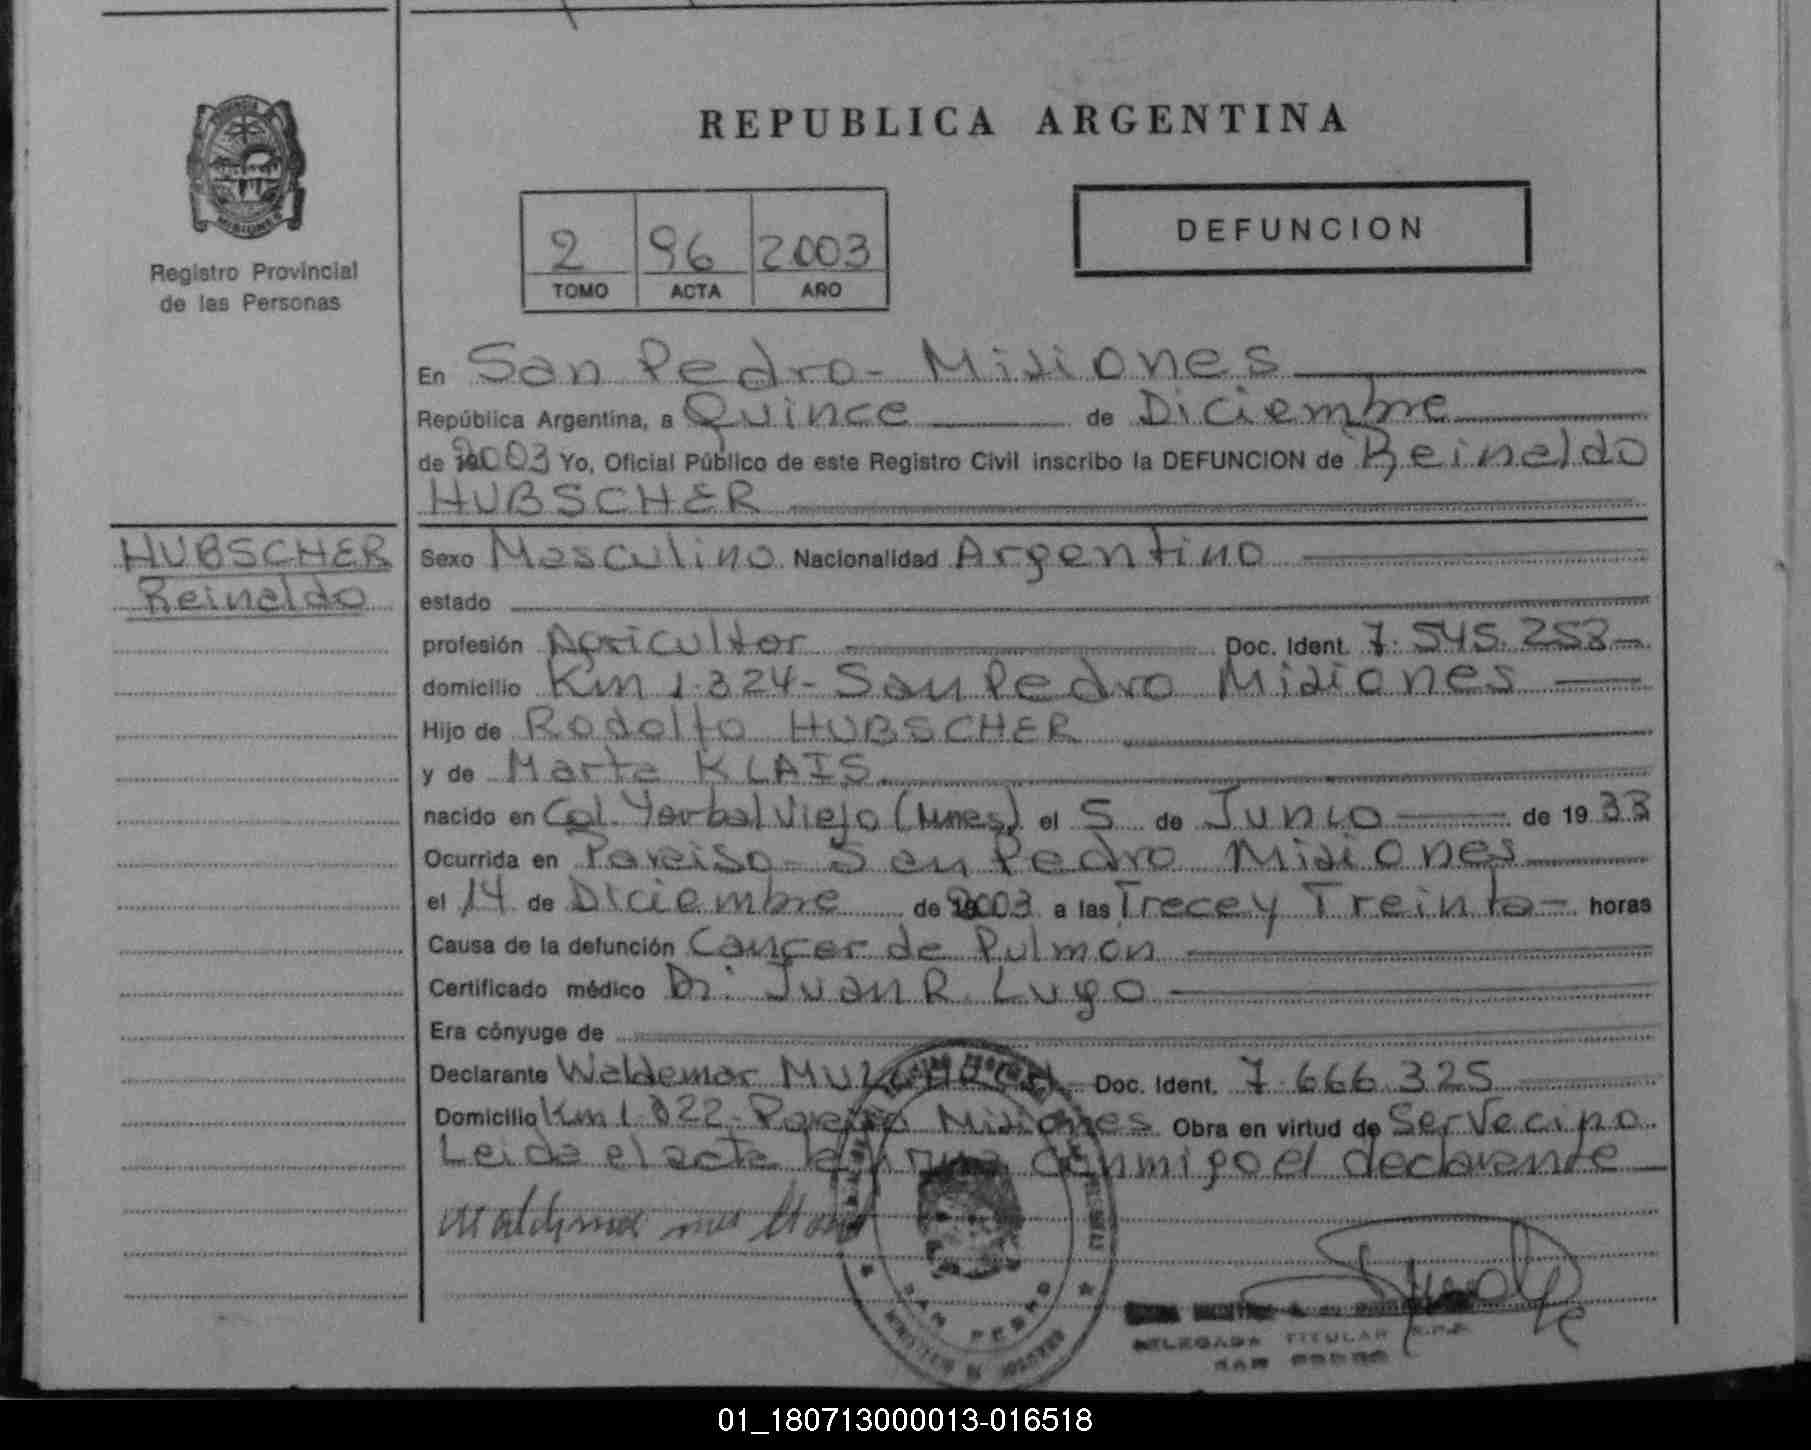 REPUBLICA ARGENTINA
Registro Provincial
de las Personas
2 96 2003
TOMO ACTA AÑO
DEFUNCION
En San Pedro - Misiones
República Argentina, a Quince de Diciembre
de 2003 Yo, Oficial Público de este Registro Civil inscribo la DEFUNCION de Reinaldo
HUBSCHER
HUBSCHER
Reinaldo
Sexo Masculino Nacionalidad Argentino
estado
profesión Agricultor Doc. Ident. 7.545.258
domicilio Km 1.324 - San Pedro Misiones
Hijo de Rodolfo HUBSCHER
y de Marta KLAIS
nacido en Col. Yerbal Viejo (Mnes) el 5 de Junio de 1933
Ocurrida en Paraiso - San Pedro Misiones
el 14 de Diciembre de 2003 a las Trece y Treinta - horas
Causa de la defunción Cancer de Pulmon
Certificado médico Dr. Juan R. Lugo
Era cónyuge de
Declarante Waldemar Doc. Ident. 7.666.325
Domicilio Km 1.322 - Paraiso Misiones Obra en virtud de Ser Vecino.
Leida el acta la firma conmigo el declarante
SAN PEDRO
DELEGADA TITULAR R.P.P.
SAN PEDRO
01_180713000013-016518